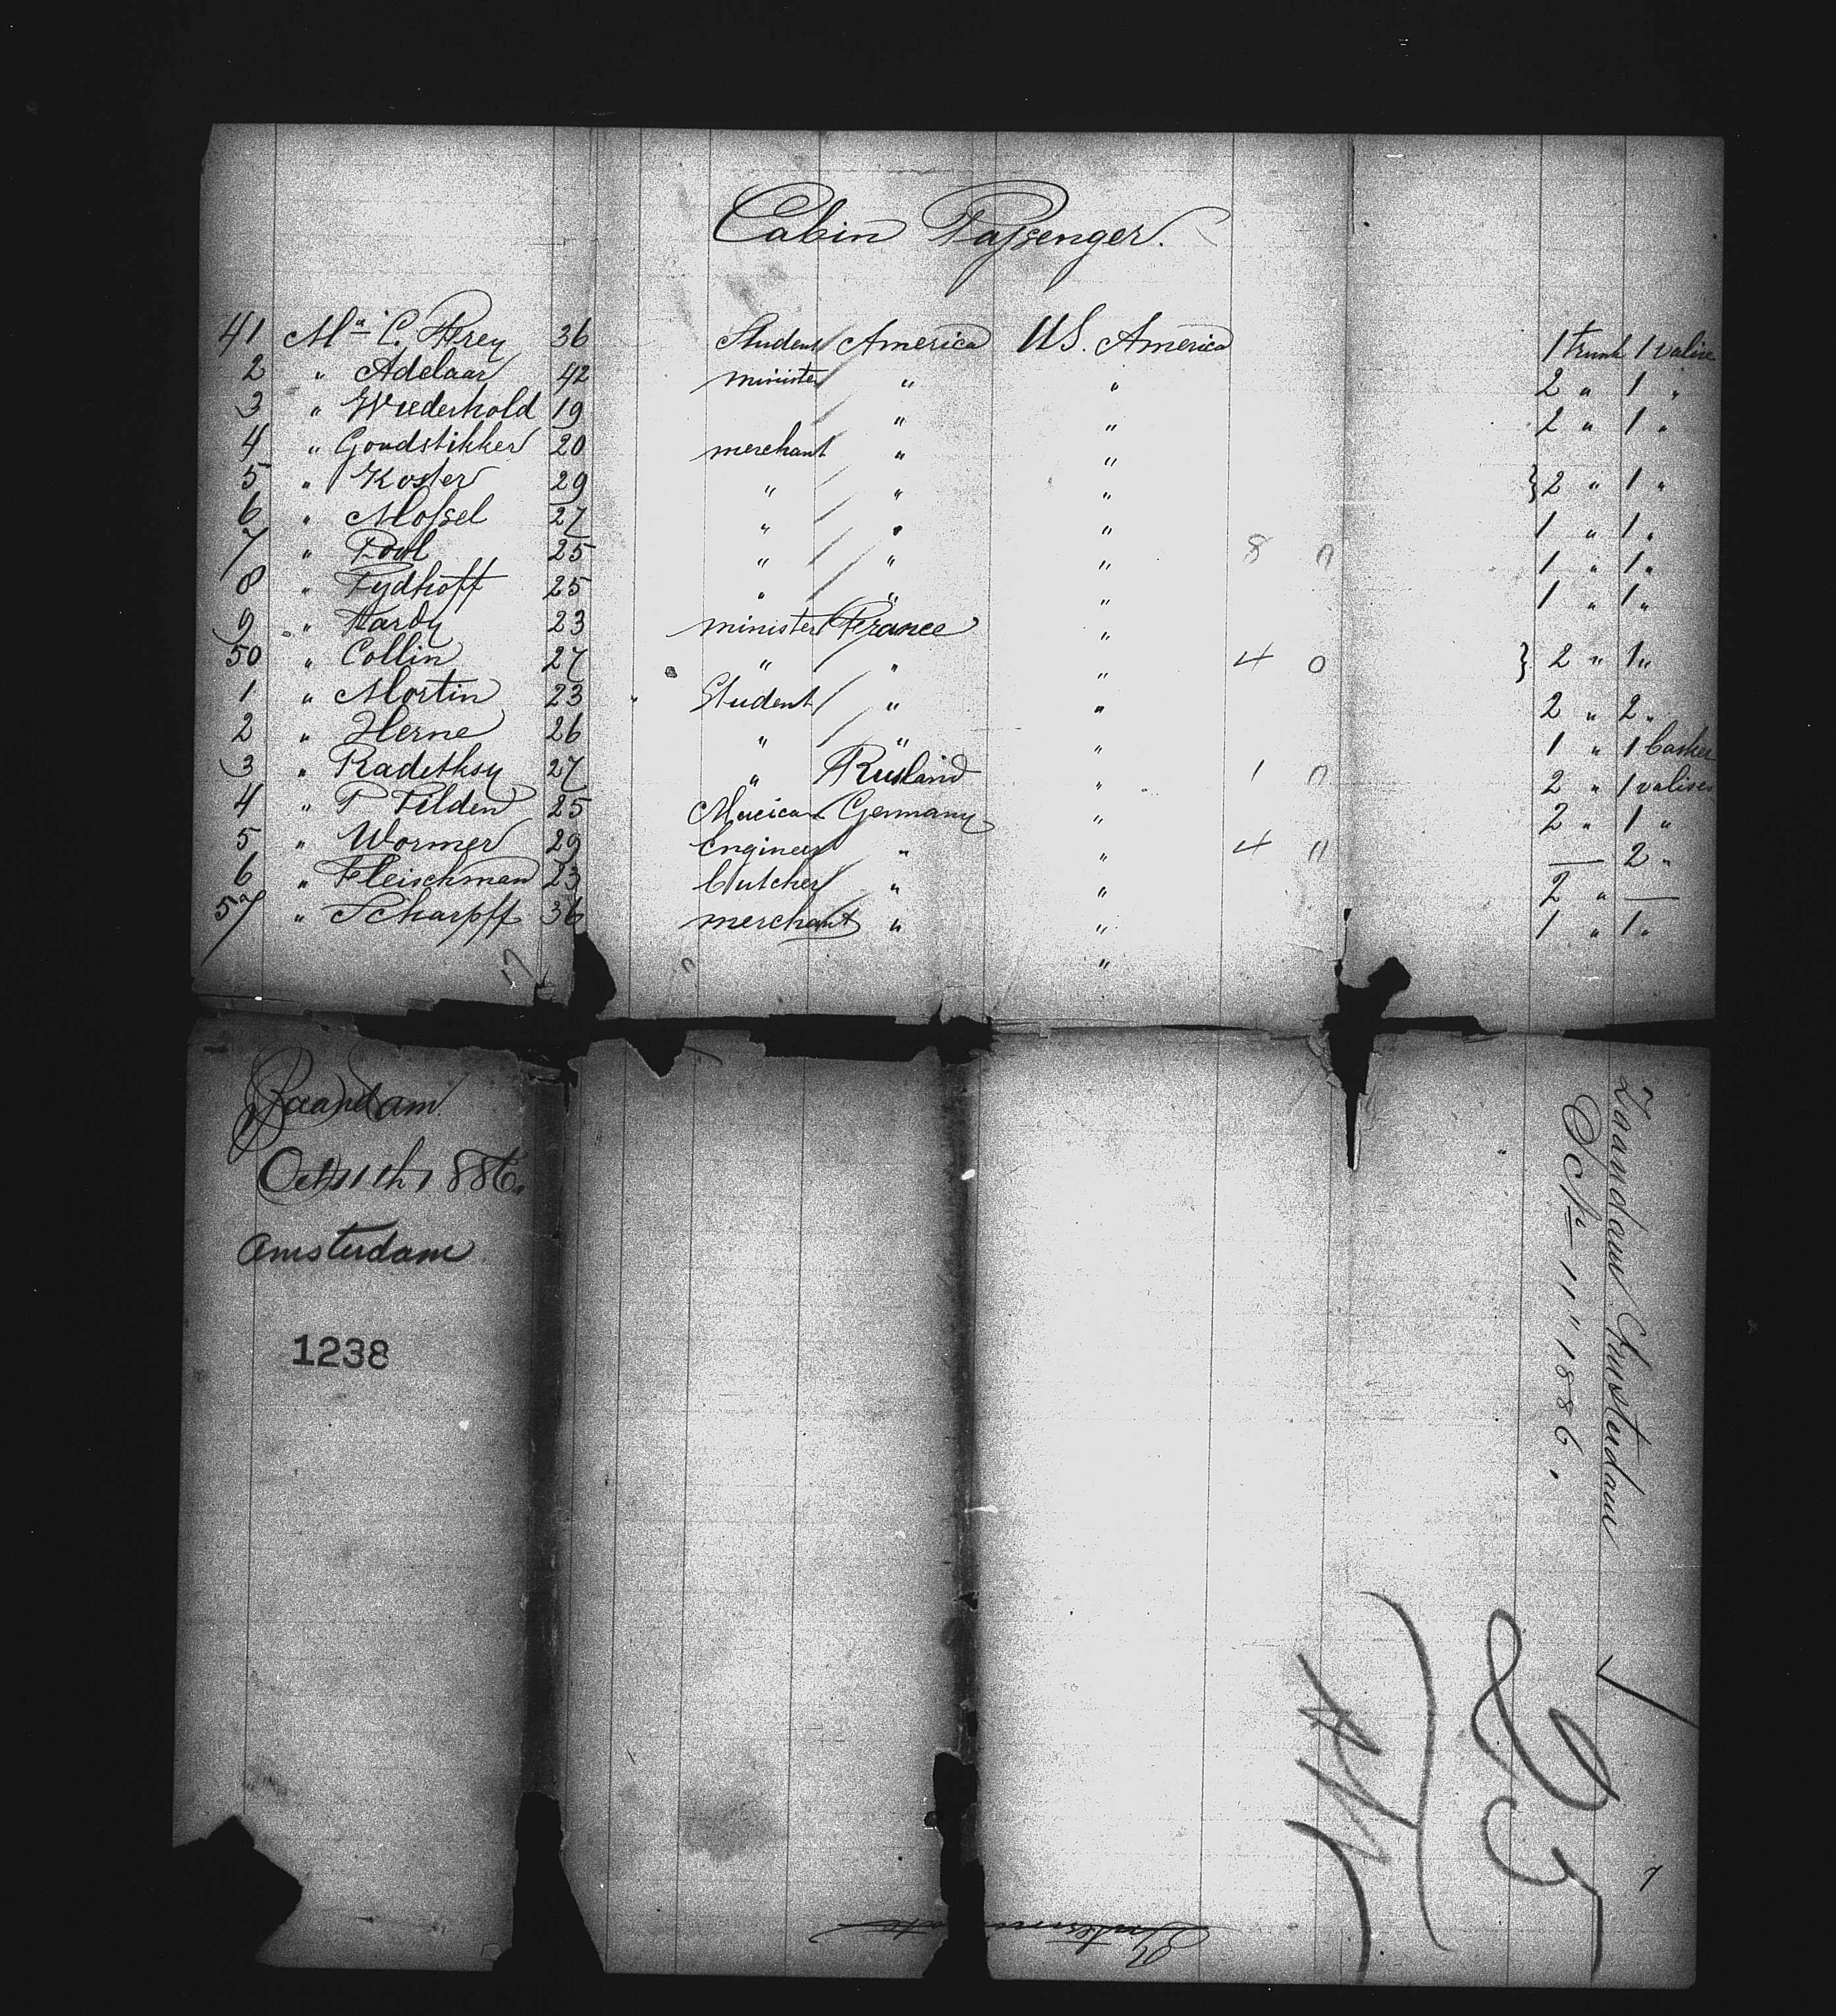 Cabin Passenger.
41 Mr C. Frey 36 Student America U.S. America 1 trunk 1 valise
2 " Adelaar 42 minister " " 2 " 1 "
3 " Wiederhold 19 " " 2 " 1 "
4 " Goudstikker 20 merchant " "
5 " Koster 29 " " " } 2 " 1 "
6 " Mossel 27 " " " 1 " 1 "
7 " Pool 25 " " " 8 0 1 " 1 "
8 " Fydhoff 25 " " " 1 " 1 "
9 " Hardy 23 minister France "
50 " Collin 27 " " " 4 0 } 2 " 1 "
1 " Mortin 23 Student " " 2 " 2 "
2 " Herne 26 " " " 1 " 1 basket
3 " Radetksy 27 " Rusland " 1 0 2 " 1 valises
4 " P Tilden 25 Germany " 2 " 1 "
5 " Wormer 29 Engineer " " 4 0 — 2 "
6 " Fleischman 23 butcher " " 2 " —
57 " Scharpff 36 merchant " " 1 " 1 "
"
17 0
Zaandam
Oct 11th 1886.
Amsterdam
1238
Zaandam Amsterdam
Oct 11" 1886.